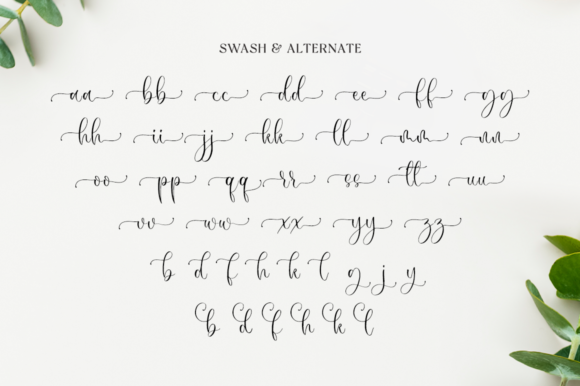 SWASH & ALTERNATE
aa bb cc dd ee ff gg
hh ii jj kk ll mm nn
oo pp qq rr ss tt uu
vv ww xx yy zz
b d f h k l g j y
b d f h k l